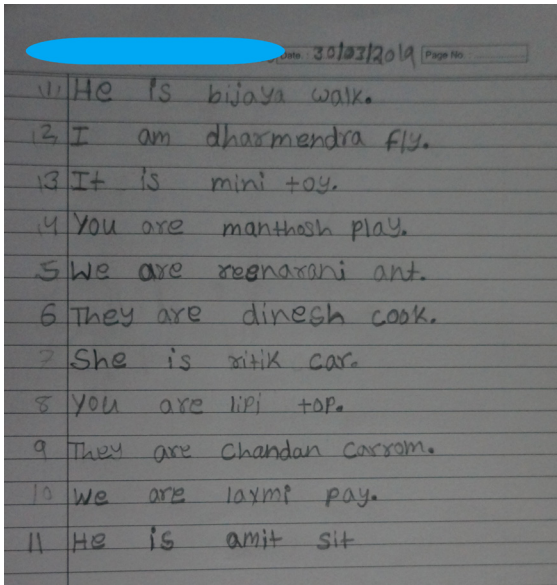 Date 30/03/2019 Page No.
(1) He is bijaya walk.
2 I am dharmendra fly.
3 It is mini toy.
4 You are manthosh play.
5 We are reenarani ant.
6 They are dinesh cook.
7 She is ritik car.
8 You are lipi top.
9 They are Chandan Carrom.
10 We are laxmi pay.
11 He is amit sit